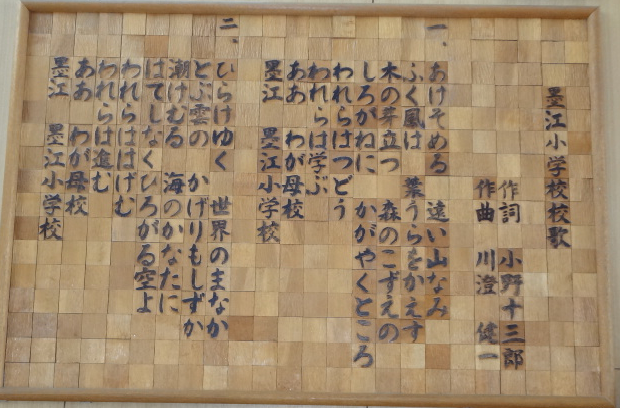 墨江小学校校歌
作詞 小野十三郎
作曲 川澄健一
一、あけそめる 遠い山なみ
ふく風は 葉うらをかえす
木の芽立つ 森のこずえの
しろがねに かがやくところ
われらはつどう
われらは学ぶ
ああ わが母校
墨江 墨江小学校
二、ひらけゆく 世界のまなか
とぶ雲の かげりもしずか
潮けむる 海のかなたに
はてしなくひろがる空よ
われらははげむ
われらは進む
ああ わが母校
墨江 墨江小学校